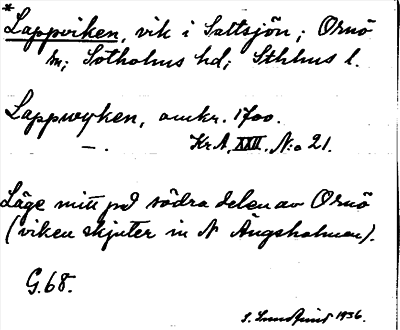 * Lappviken, vik i Saltsjön; Ornö
sn; Sotholms hd; Sthlms l.
Lappwyken, omkr. 1700.
—. Kr.A. XXII. N:o 21.
Läge mitt på södra delen av Ornö
(viken skjuter in N Ängsholmen).
G.68.
S. Lundqvist 1936.